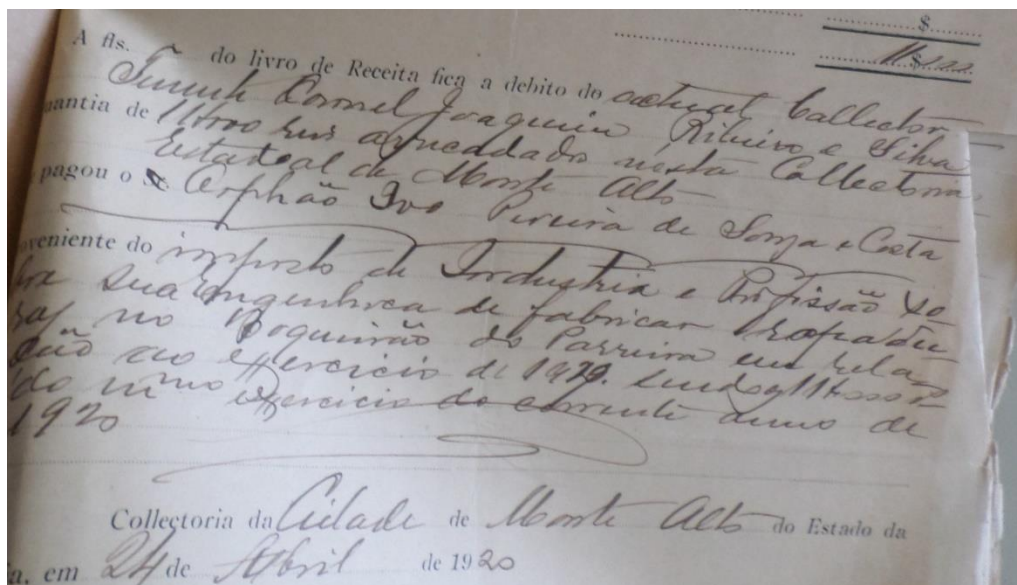 $
11$000
A fls. do livro de Receita fica a debito do actual Collector
Tenente Coronel Joaquim Ribeiro e Silva
uantia de 11$000 reis arrecadados nesta Collectoria
Estadoal de Monte Alto
pagou o Orphão Ivo Pereira de Souza e Costa
oveniente do imposto de Industria e Profissão so
bre sua engenhoca de fabricar rapadu
ra, no Boqueirão do Parreira em rela
ção ao exercicio de 19 sendo
do exercicio do corrente anno de
1920
Collectoria da Cidade de Monte Alto do Estado da
a, em 24 de Abril de 1920